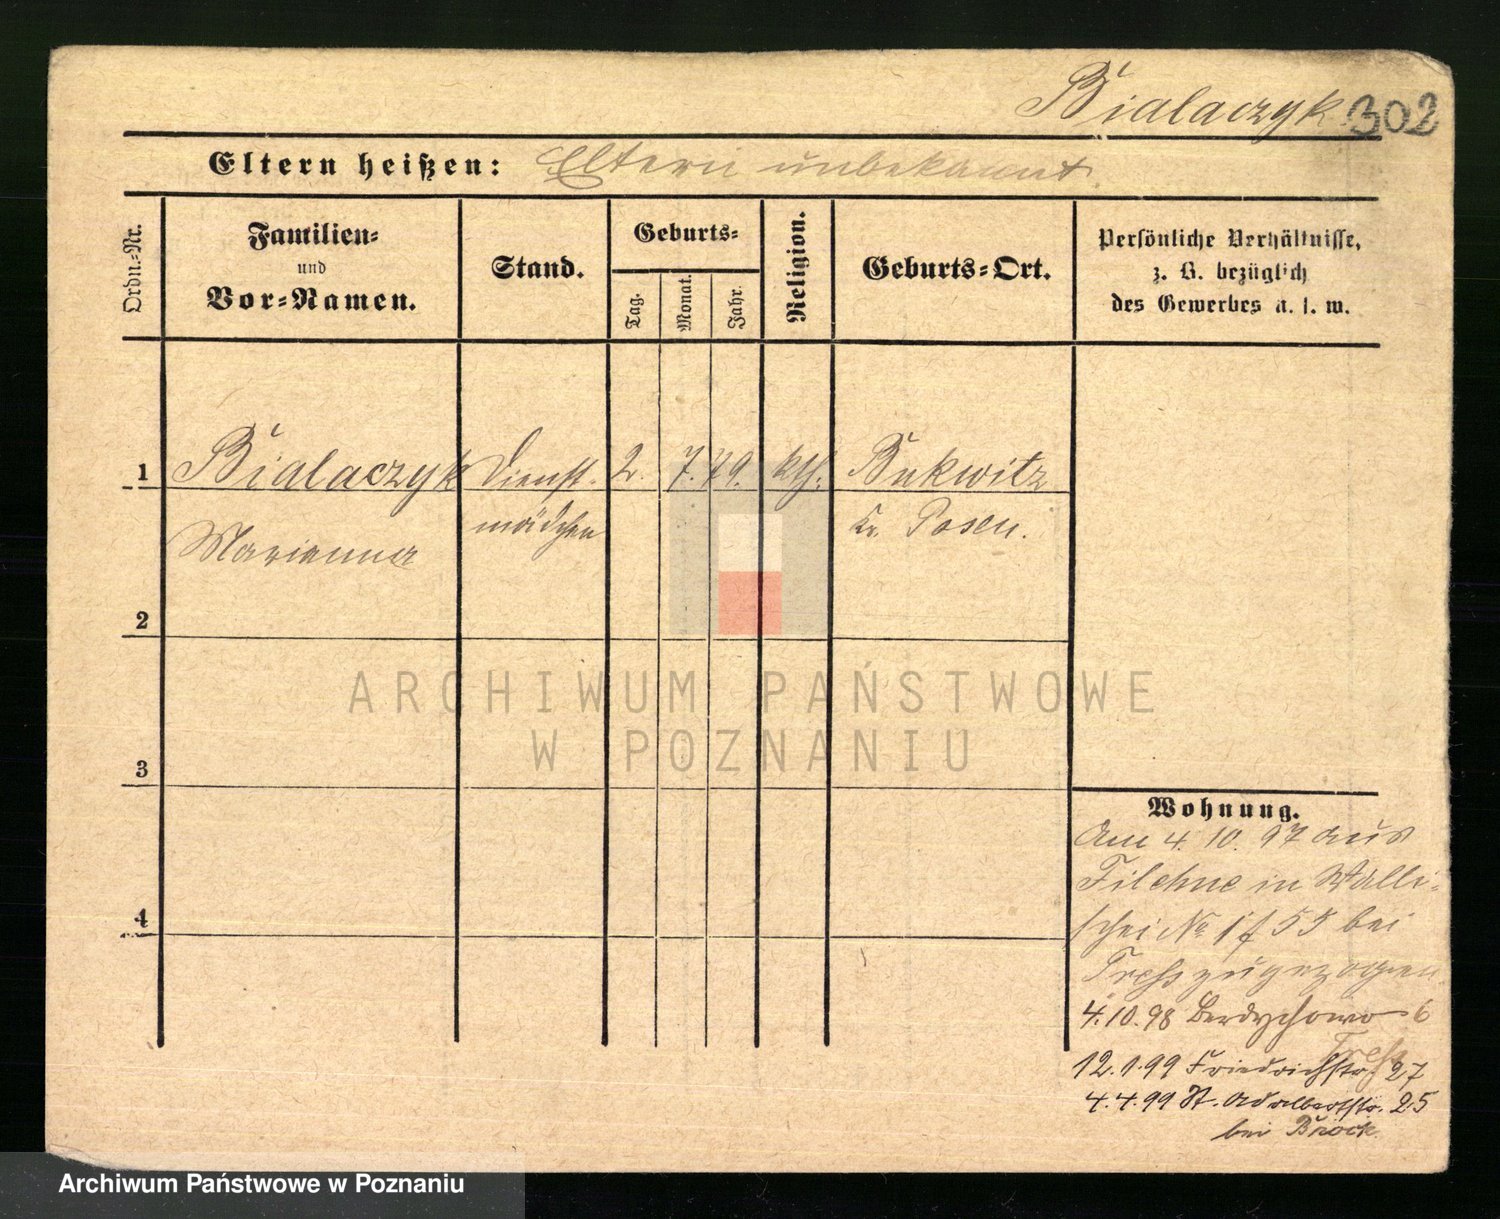 Bialaczyk 302
Eltern heißen: Eltern unbekannt.
Ordn.-Nr.
Familien-
und
Vor-Namen.
Stand.
Geburts-
Tag.
Monat.
Jahr.
Religion.
Geburts-Ort.
Persönliche Verhältnisse,
z. B. bezüglich
des Gewerbes u. s. w.
1 Bialaczyk Dienst- 2. 7. 79. kth. Bukwitz
Marianna mädchen Kr. Posen.
2
3
4
Wohnung.
Am 4. 10. 97 aus
Filehne in Walli-
schei No 55 bei
zugezogen
4. 10. 98 Berdychowo 6
12. 1. 99 Friedrichstr. 27
4. 4. 99 St. Adalbertstr. 25
bei Bröck
ARCHIWUM PAŃSTWOWE
W POZNANIU
Archiwum Państwowe w Poznaniu